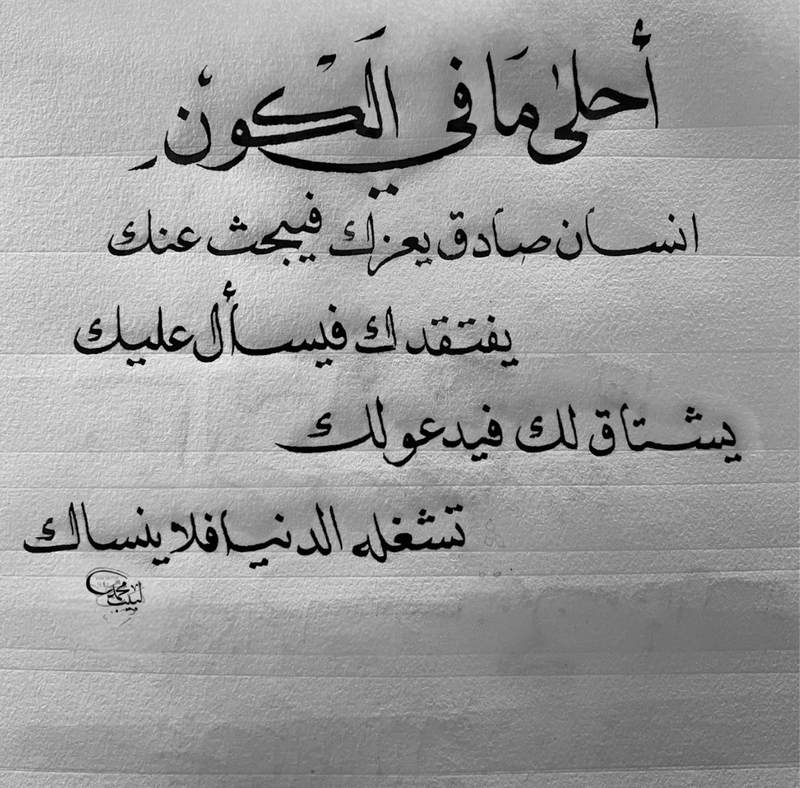 أحلى مَا في الَكْونْ
انسان صادق يعزك فيبحث عنك
يفتقدك فيسأل عليك
يشتاق لك فيدعولك
تشغله الدنيا فلا ينساك